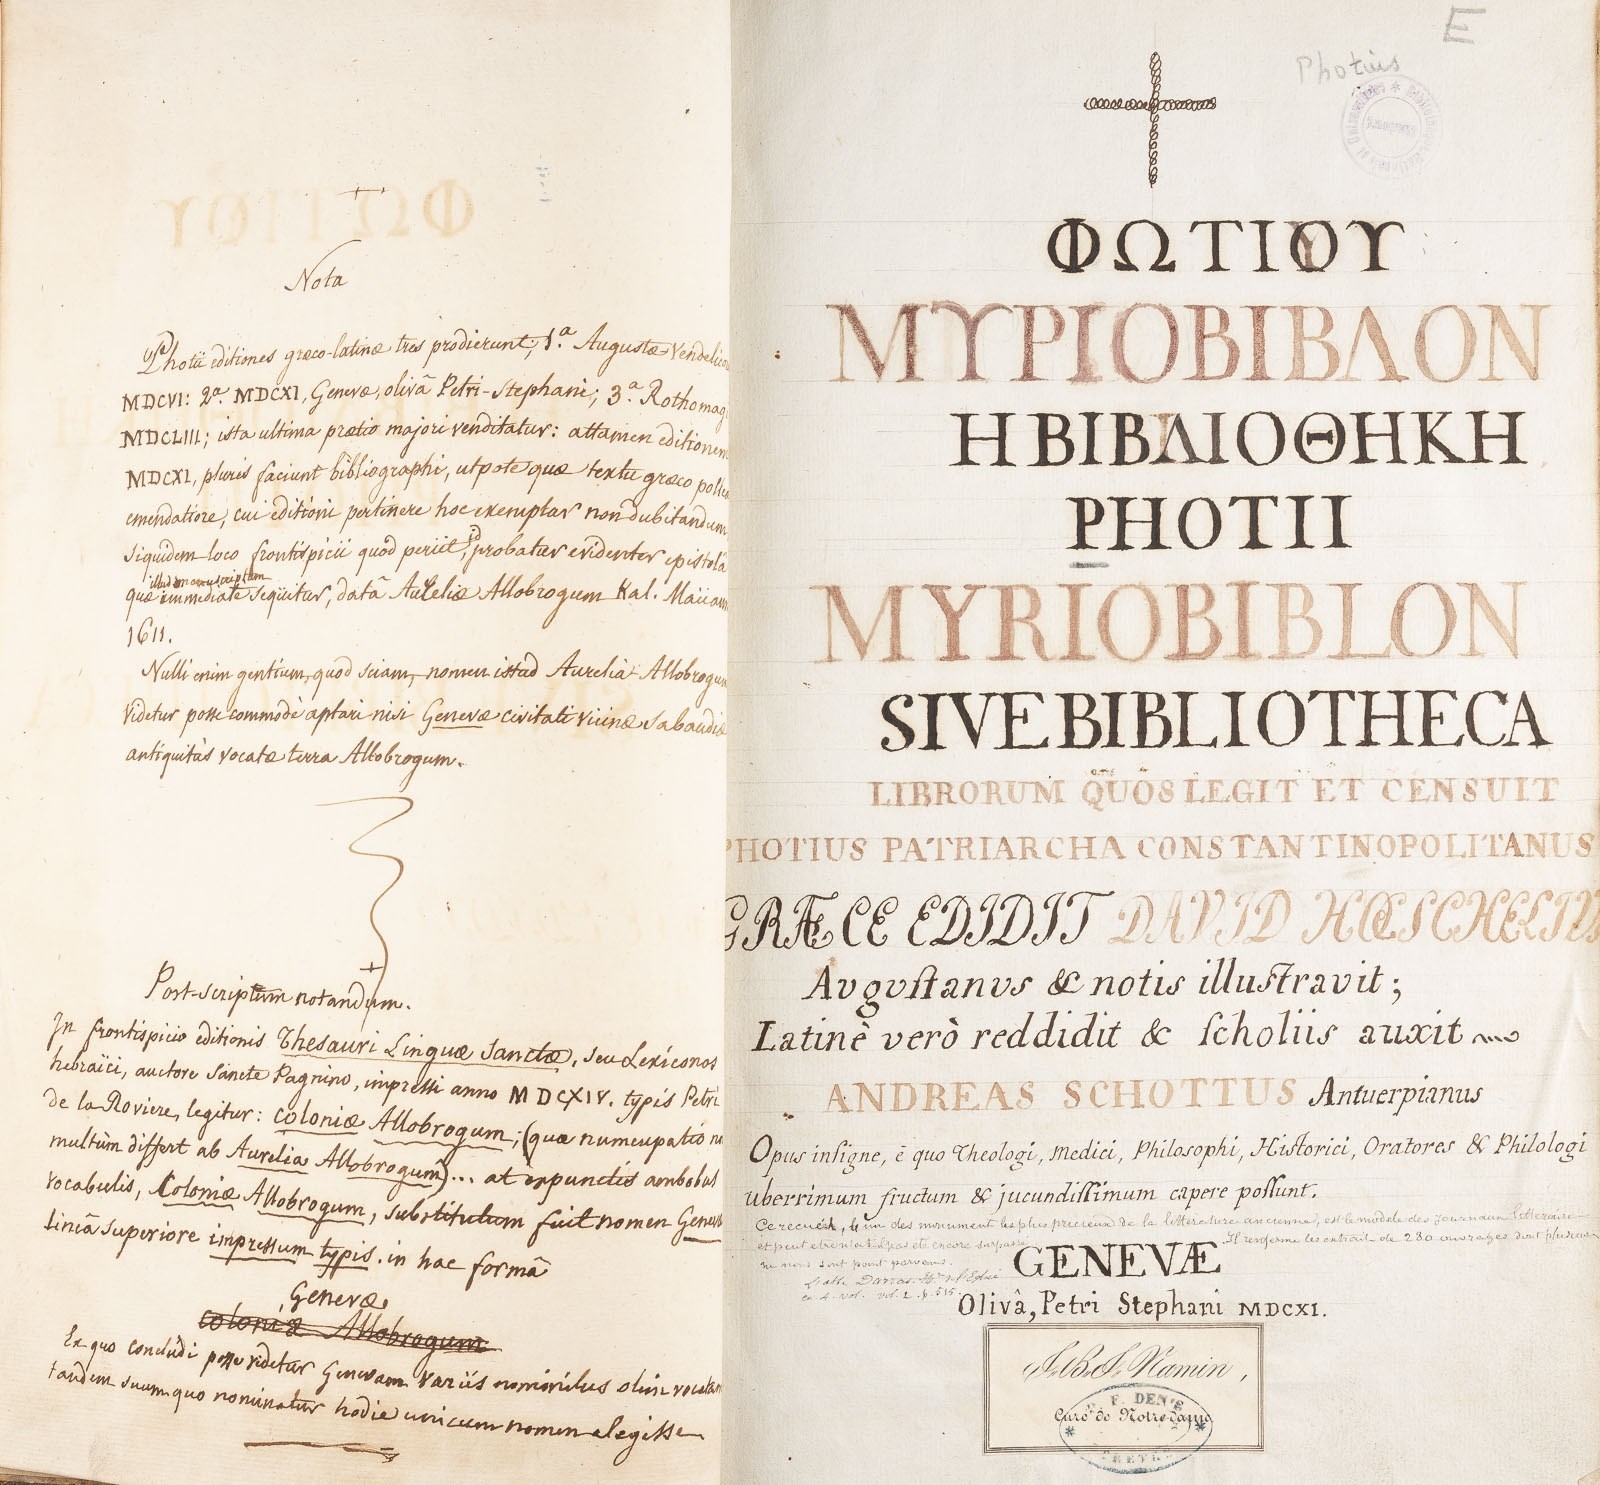 Nota
Photii editiones græco-latinæ tres prodierunt; 1.a Augustæ Vendelico
MDCVI: 2a. MDCXI, Genevæ, olivâ Petri-Stephani; 3.a Rothomag
MDCLIII; ista ultima prætio majori venditatur: attamen editionem
MDCXI, pluris faciunt bibliographi, utpote quæ textu græco polle
emendatiore, cui editioni pertinere hoc exemplar non dubitandum
siquidem loco frontispicii quod periit, id probatur evidenter epistolâ
illud manuscriptum
quæ immediatè sequitur, datâ Aureliæ Allobrogum Kal. Maii an
1611.
Nulli enim gentium, quod sciam, nomen istud Aurelia Allobrogum
videtur posse commodè aptari nisi Genevæ civitati vicinæ Sabaudiæ
antiquitùs vocatæ terra Allobrogum.
Post-scriptum notandum.
In frontispicio editionis Thesauri Linguæ Sanctæ, seu Lexiconos
hebraïci, auctore Sancte Pagnino, impressi anno MDCXIV. typis Petri
de la Roviere, legitur: coloniæ Allobrogum; (quæ nuncupatio n
multùm differt ab Aurelia Allobrogum)... at expunctis ambobus
vocabulis, Coloniæ Allobrogum, substitutum fuit nomen Genev
liniâ superiore impressum typis. in hac formâ
Genevæ
coloniæ Allobrogum
Ex quo concludi posse videtur Genevam variis nominibus olim vocatam
tandem suum quo nominatur hodie unicum nomen elegisse
E
Photius
ΦΩΤΙΟΥ
ΜΥΡΙΟΒΙΒΛΟΝ
Η ΒΙΒΛΙΟΘΗΚΗ
PHOTII
MYRIOBIBLON
SIVE BIBLIOTHECA
LIBRORUM QUOS LEGIT ET CENSUIT
PHOTIUS PATRIARCHA CONSTANTINOPOLITANUS
GRÆCE EDIDIT DAVID HŒSCHELIUS
Avgvstanvs & notis illustravit;
Latinè verò reddidit & scholiis auxit
ANDREAS SCHOTTUS Antuerpianus
Opus insigne, è quo Theologi, Medici, Philosophi, Historici, Oratores & Philologi
uberrimum fructum & jucundissimum capere possunt.
Ce recueil, l'un des monument les plus precieux de la litterature ancienne, est le modele des journaux litteraire
et peut etre n'a t'il pas été encore surpassé. Il renferme les extrait de 280 ouvrages dont plusieurs
ne nous sont point parvenus.
GENEVÆ
L'abbé Darras. Hre de l'Eglise
en 4. vol. vol. 2. p. 515.
Olivâ, Petri Stephani MDCXI.
J. B. J. Namin,
Curé de Notre-Dame
F. DEN'E